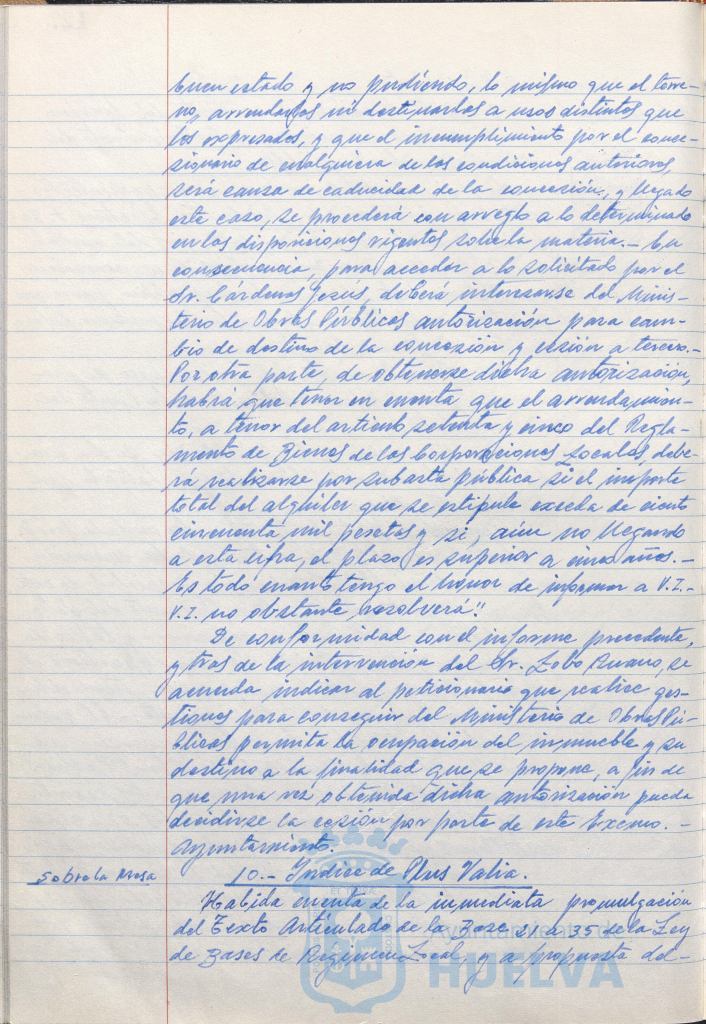 buen estado y no pudiendo, lo mismo que el terre-
no, arrendarlos ni destinarlos a usos distintos que
los expresados, y que el incumplimiento por el conce-
sionario de cualquiera de las condiciones anteriores,
será causa de caducidad de la concesión, y llegado
este caso, se procederá con arreglo a lo determinado
en las disposiciones vigentes sobre la materia.- En
consecuencia, para acceder a lo solicitado por el
Sr. Cárdenas Jesús, deberá interesarse del Minis-
terio de Obras Públicas autorización para cam-
bio de destino de la concesión y cesión a tercero.-
Por otra parte, de obtenerse dicha autorización,
habrá que tener en cuenta que el arrendamien-
to, a tenor del artículo setenta y cinco del Regla-
mento de Bienes de las Corporaciones Locales, debe-
rá realizarse por subasta pública si el importe
total del alquiler que se estipule exceda de ciento
cincuenta mil pesetas y si, aún no llegando
a esta cifra, el plazo es superior a cinco años.-
Es todo cuanto tengo el honor de informar a V.I.-
V.I. no obstante, resolverá".
De conformidad con el informe precedente,
y tras de la intervención del Sr. Lobo Ruano, se
acuerda indicar al peticionario que realice ges-
tiones para conseguir del Ministerio de Obras Pú-
blicas permita la ocupación del inmueble y su
destino a la finalidad que se propone, a fin de
que una vez obtenida dicha autorización pueda
decidirse la cesión por parte de este Excmo.-
Ayuntamiento.
Sobre la Mesa 10.- Indice de Plus Valia.
Habida cuenta de la inmediata promulgación
del Texto Articulado de la Base 21 a 35 de la Ley
de Bases de Regimen Local, y a propuesta del-
Ayuntamiento de
HUELVA